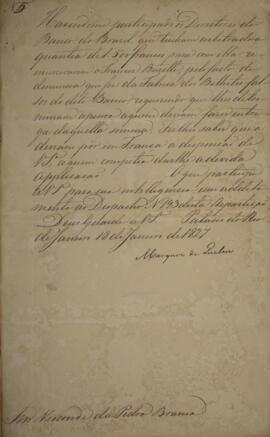 Havendome participado os Directores do
Banco do Brasil que tinham arbitrado a
quantia de 1500 francos para com ella
remunerarem a Francisco Buzetti, pelo facto da
denuncia que fez da Fabrica dos Bilhetes fal
sos do dito Banco, requerendo que lhes deter
minasse a quem aqui deviam fazer entre
ga daquella somma, fiz lhes saber que a
deviam pôr em França a disposição de
VSª, a quem competia dar lhe a devida
applicação
O que participo
a VSª para sua intelligencia, em additi
mento ao Despacho Nº 93 desta Repartição
Deos Guarde a VSª Palacio do Rio
de Janeiro 18 de Janeiro de 1827
Marquez de Queluz
Snr. Visconde da Pedra Branca